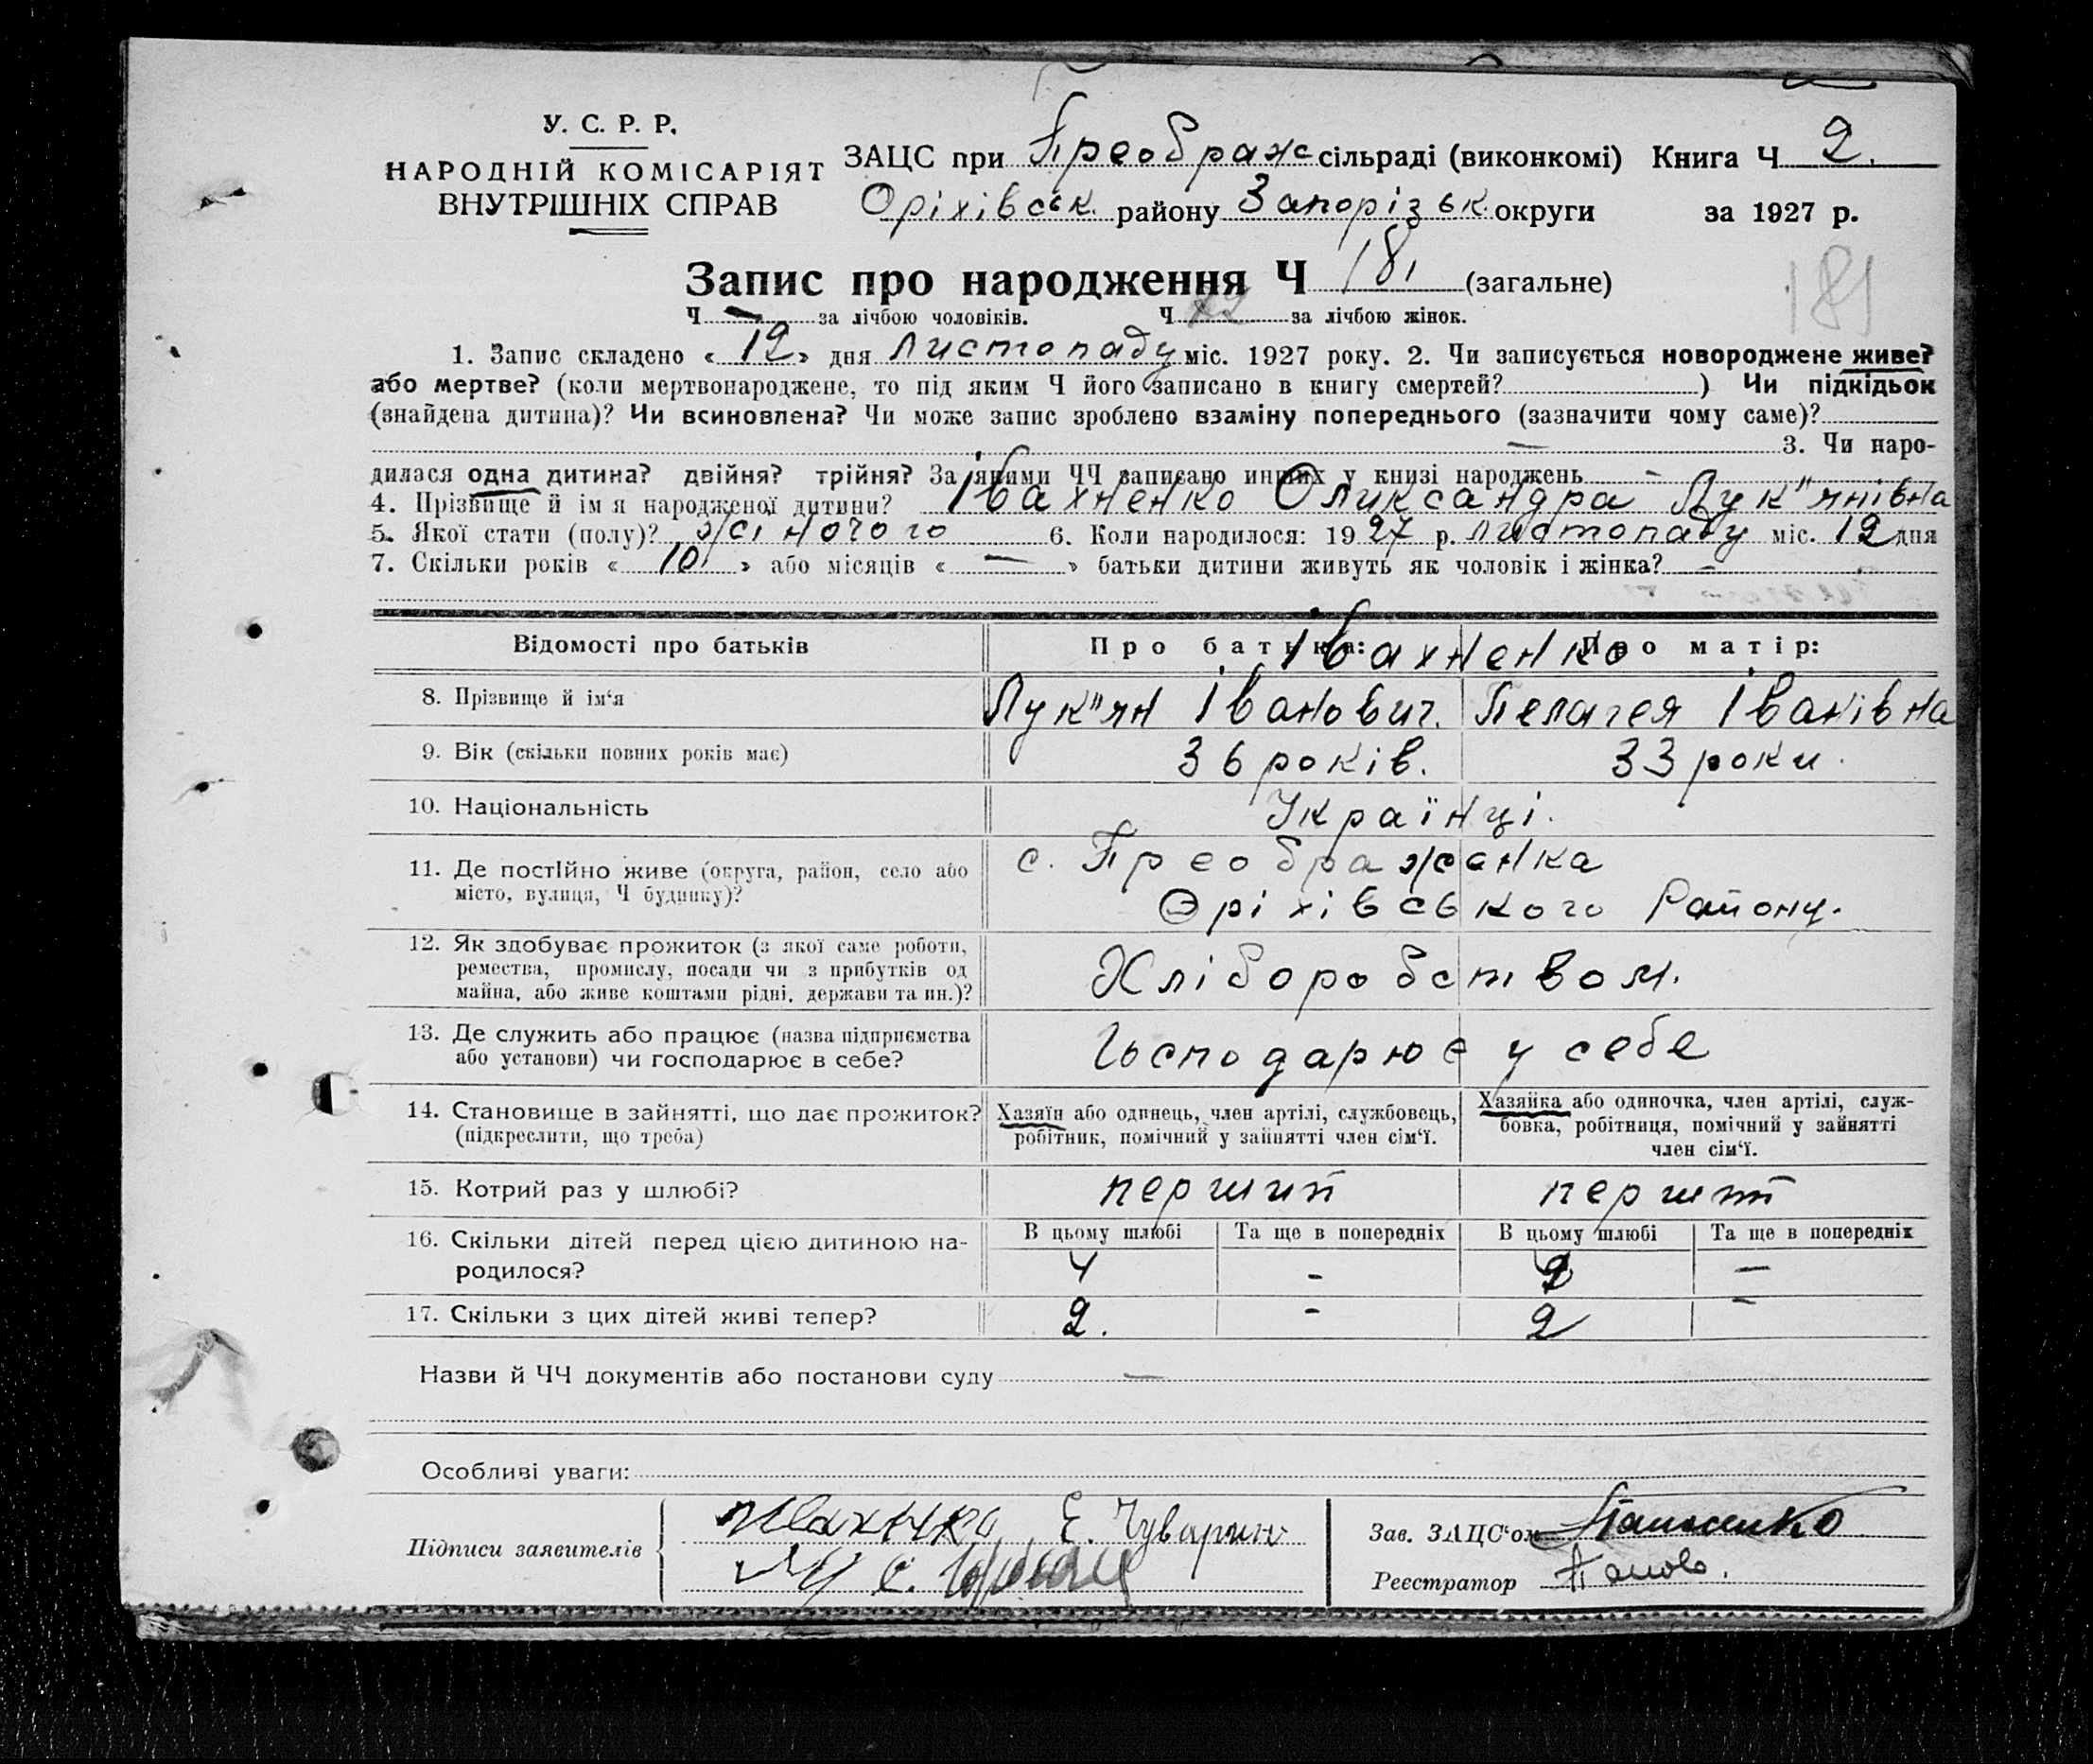 У. С. Р. Р.
НАРОДНІЙ КОМІСАРІЯТ
ВНУТРІШНІХ СПРАВ
ЗАЦС при Преображ сільраді (виконкомі) Книга Ч 2.
Оріхівськ. району Запорізьк. округи за 1927 р.
Запис про народження Ч 181 (загальне)
181
Ч — за лічбою чоловіків. Ч за лічбою жінок.
1. Запис складено « 12 » дня Листопаду міс. 1927 року. 2. Чи записується новороджене живе?
або мертве? (коли мертвонароджене, то під яким Ч його записано в книгу смертей? ) Чи підкідьок
(знайдена дитина)? Чи всиновлена? Чи може запис зроблено взаміну попереднього (зазначити чому саме)?
— 3. Чи наро-
дилася одна дитина? двійня? трійня? За якими ЧЧ записано инших у книзі народжень -
4. Прізвище й ім я народженої дитини? Івахненко Оликсандра Лук"янівна
5. Якої стати (полу)? жіночого 6. Коли народилося: 1927 р. листопаду міс. 12 дня
7. Скільки років « 10 » або місяців « — » батьки дитини живуть як чоловік і жінка? —
Відомості про батьків Про батька: Про матір:
Івахненко
8. Прізвище й ім‘я Лук"ян Іванович. Пелагея Іванівна
9. Вік (скільки повних років має) 36 років. 33 роки.
10. Національність Українці.
11. Де постійно живе (округа, район, село або
місто, вулиця, Ч будинку)?
с. Преображенка
Оріхівського Району.
12. Як здобуває прожиток (з якої саме роботи,
ремества, промислу, посади чи з прибутків од
майна, або живе коштами рідні, держави та ин.)?
Хліборобством.
13. Де служить або працює (назва підприємства
або установи) чи господарює в себе?
Господарює у себе
14. Становище в зайнятті, що дає прожиток?
(підкреслити, що треба)
Хазяїн або одинець, член артілі, службовець,
робітник, помічний у зайнятті член сім‘ї.
Хазяйка або одиночка, член артілі, служ-
бовка, робітниця, помічний у зайнятті
член сім‘ї.
15. Котрий раз у шлюбі? перший перший
16. Скільки дітей перед цією дитиною на-
родилося?
В цьому шлюбі Та ще в попередніх В цьому шлюбі Та ще в попередніх
4 - —
17. Скільки з цих дітей живі тепер? 2. - 2 —
Назви й ЧЧ документів або постанови суду —
Особливі уваги:
Підписи заявителів
Зав. ЗАЦС‘ом
Реєстратор